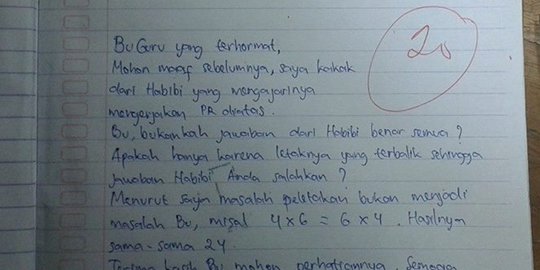 20
Bu Guru yang terhormat,
Mohon maaf sebelumnya, saya kakak
dari Habibi yang mengajarinya
mengerjakan PR diatas.
Bu, bukankah jawaban dari Habibi benar semua?
Apakah hanya karena letaknya yang terbalik sehingga
jawaban Habibi Anda salahkan?
Menurut saya masalah peletakan bukan menjadi
masalah Bu, misal 4 x 6 = 6 x 4. Hasilnya
sama-sama 24
Terima kasih Bu mohon perhatiannya. Semoga